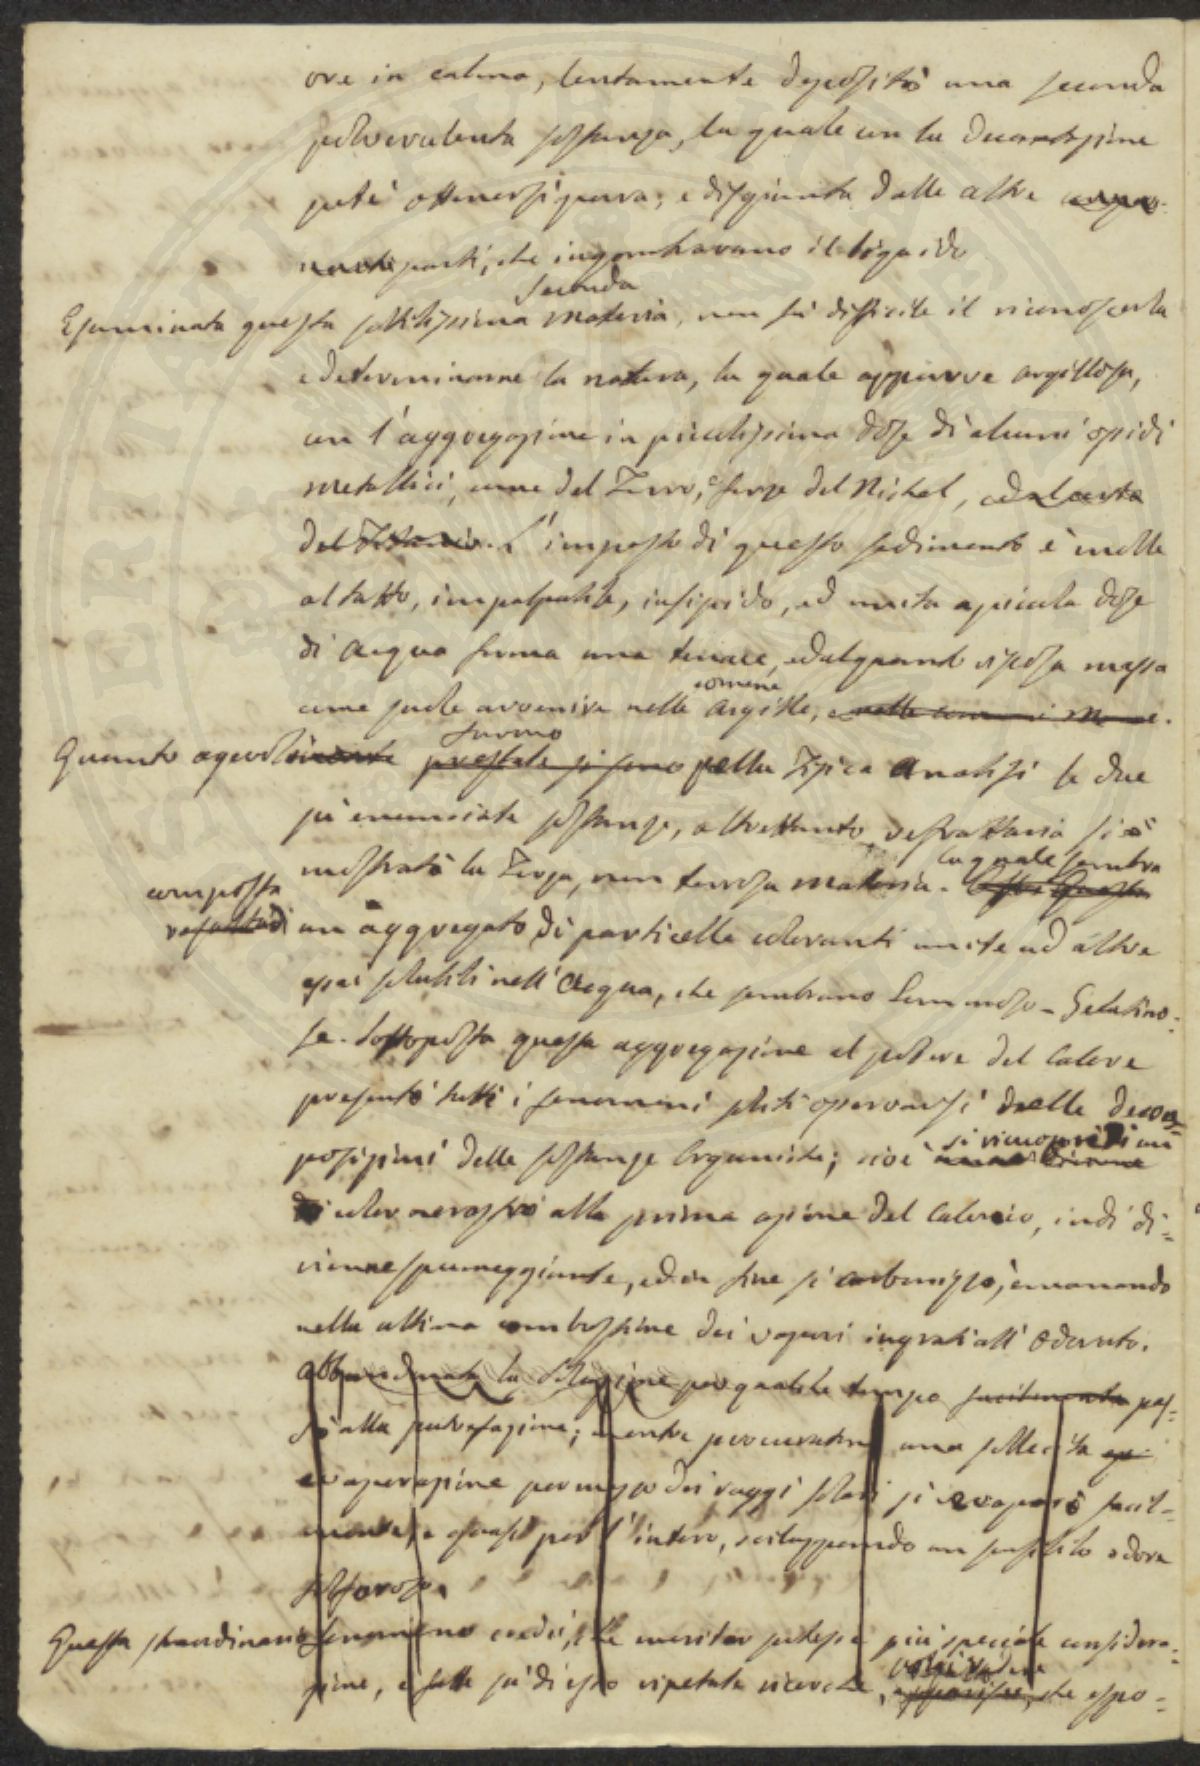 ove in calma, lentamente depositò una seconda
polverulenta sostanza, la quale con la decantazione
poté ottenersi pura, e disgiunta dalle altre
parti, che ingombravano il liquido
seconda
Esaminata questa sottilissima materia, non fu difficile il riconoscerla
e determinarne la natura, la quale apparve argillosa,
con l'aggregazione in picciolissima dose di alcuni ossidi
metallici, come del Ferro, e forse del Nichel, ed al certo
del Titanio. L'impasto di questo sedimento è molle
al tatto, impalpabile, insipido, ed unita a picciola dose
di acqua forma una tenace, ed alquanto viscosa massa
comune
come suole avvenire nelle Argille, e nelle comuni Marne.
furono
Quanto agevolmente prestate si sono nella Fisica Analisi le due
già enunciate sostanze, altrettanto refrattaria si è
la quale sembra
mostrata la Terza, non terrosa materia.
composta
un aggregato di particelle coloranti unite ad altre
assai solubili nell'Acqua, che sembrano Gommoso-Gelatino=
se. Sottoposta questa aggregazione al potere del Calore
presentò tutti i fenomeni soliti osservarsi nelle decom=
si ricoprì di un
posizioni delle sostanze Organiche; cioè
color nerastro alla prima azione del Calorico, indi di=
venne spumeggiante, ed in fine si carbonizzò, emanando
nella ultima combustione dei vapori ingrati all'Odorato.
Abbandonata la Soluzione per qualche tempo facilmente pas=
sò alla putrefazione; mentre procuratane una sollecita
evaporazione per mezzo dei raggi solari si evaporò facil=
mente, e quasi per l'intero, sviluppando un sensibile odore
solforoso.
Questo straordinario fenomeno credei, che meritar potesse più speciale considera=
zione, e fatte su di esso ripetute ricerche, che espo=